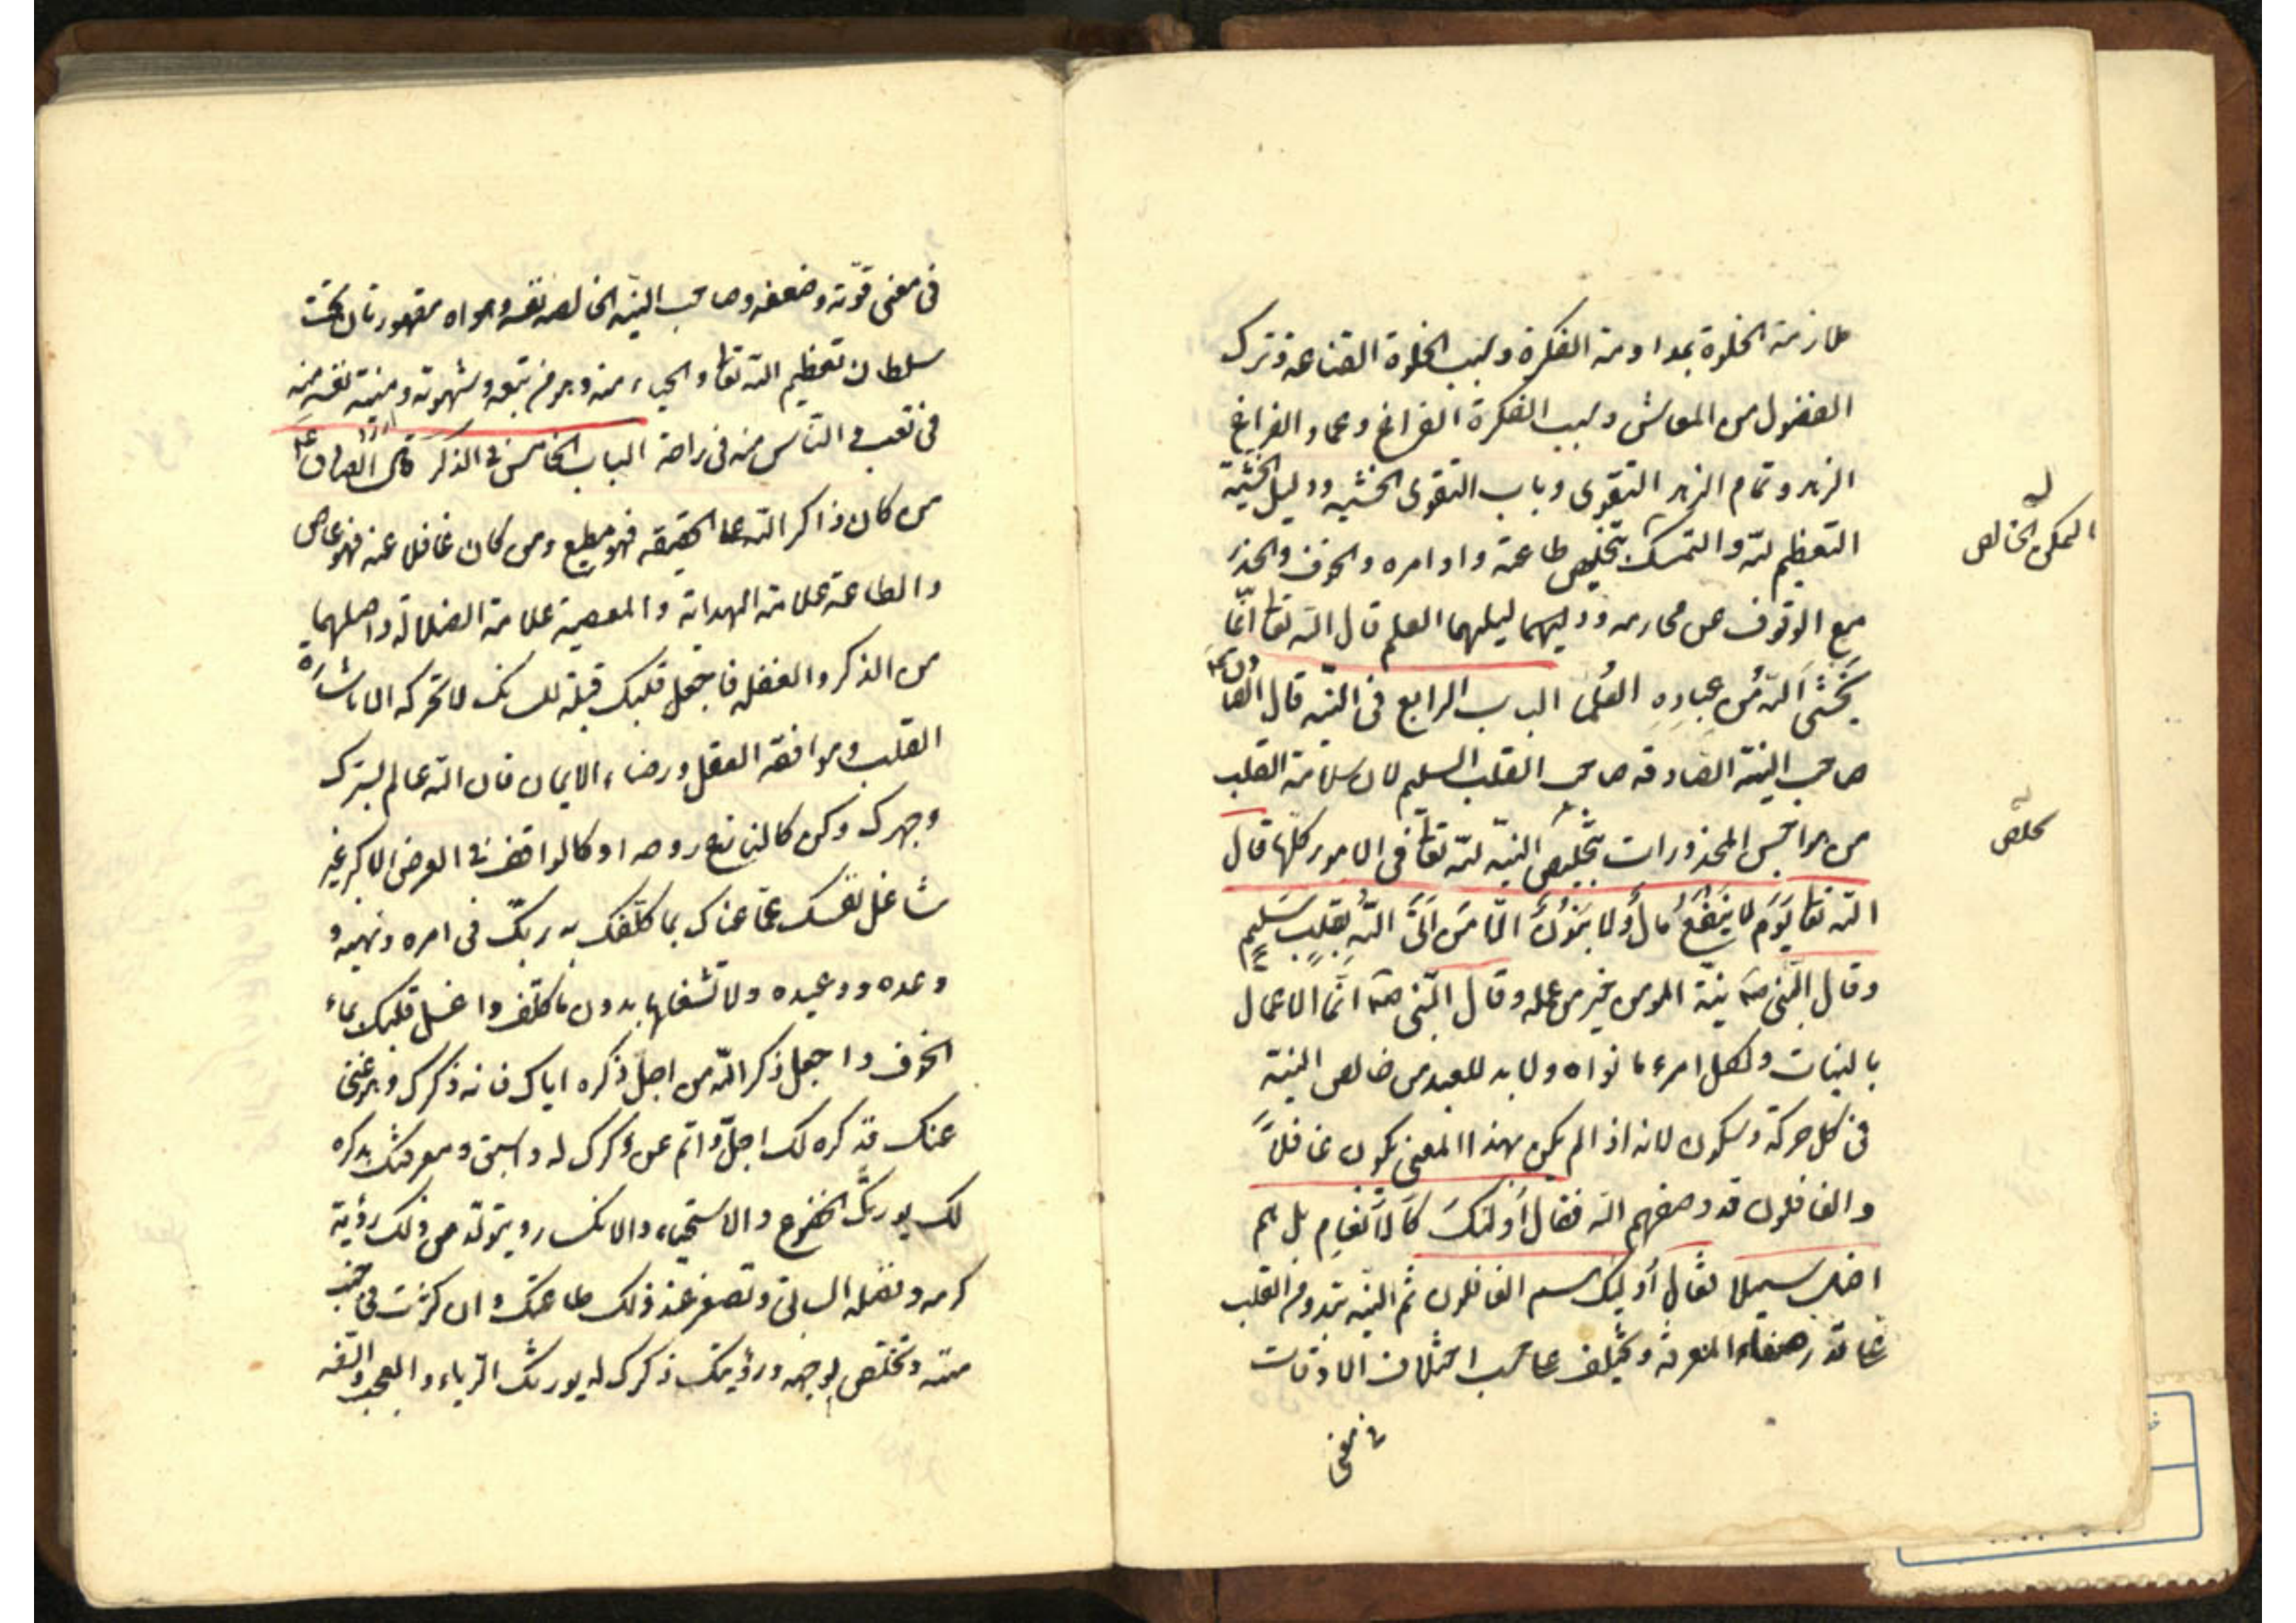 ملازمة الخلوة بمداومة الفكرة وسبب الخلوة القناعة وترك
الفضول من المعاش وسبب الفكرة الفراغ وعماد الفراغ
الزهد وتمام الزهد التقوى وباب التقوى الخشية ودليل الخشية
التعظيم لله والتمسك بتخليص طاعته واوامره والخوف والحذر
مع الوقوف عن محارمه ودليلهما العلم قال الله تعا انّما
يَخْشَى اللّهَ مِن عِبادِهِ العُلَما الباب الرابع في النيّه قال الصادق ع
صاحب النية الصادقه صاحب القلب السليم لان سلامة القلب
من هواجس المحذورات بتخليص النيّه للّه تعا في الامور كلّها قال
اللّه تعا يَوْمَ لا يَنْفَعُ مالٌ وَلا بَنُونَ الّا مَن اَتَى اللّهَ بِقَلبٍ سَليمٍ
وقال النّبي صه نيّة المومن خير من عمله وقال النّبي صه انّما الاعمال
بالنيات ولكل امرء ما نواه ولا بد للعبد من خالص النية
في كل حركة وسكون لانه اذا لم يكن بهذا المعنى يكون غافلاً
والغافلون قد وصفهم الله فقال أُولئكَ كَالأنعامِ بل هم
اضل سبيلا فقال أولئك هم الغافلون ثم النيّه تبدو من القلب
على قدر صفاء المعرفة ويختلف على حسب اختلاف الاوقات
في معنى
الخالص
في معنى قوّته وضعفه وصاحب النيّه الخالصه نفسه وهواه مقهورتان تحت
سلطان تعظيم اللّه تعا والحياء منه وهو من طبعه وشهوته ومنية نفسه منه
في تعب والناس منه في راحة الباب الخامس في الذكر قال الصادق ع
من كان ذاكر اللّه على الحقيقه فهو مطيع ومن كان غافلا عنه فهو عاص
والطاعة علامة الهداية والمعصية علامة الضلالة واصلهما
من الذكر والغفله فاجعل قلبك قبلة للسانك لا تحركه الا باشارة
القلب وموافقة العقل ورضاء الايمان فان اللّه عالم بسرّك
وجهرك وكن كالنازع روحه او كالواقف في العرض الاكبر غير
شاغل نفسك عمّا عناك بما كلّفك به ربّك في امره ونهيه و
وعده ووعيده ولا تشغلها بدون ما كلّف واغسل قلبك بماء
الخوف واجعل ذكر اللّه من اجل ذكره اياك فانه ذكرك وهو غنى
عنك فذكره لك اجلّ واتم من ذكرك له واسبق ومعرفتك بذكره
لك يورثك الخضوع والاستحياء والانكسار ويتولّد من ذلك رؤية
كرمه وفضله السابق وتصغر عند ذلك طاعتك وان كثرت في جنب
مننه وتخلّص لوجهه ورؤيتك ذكرك له يورثك الرّياء والعجب والسّفه